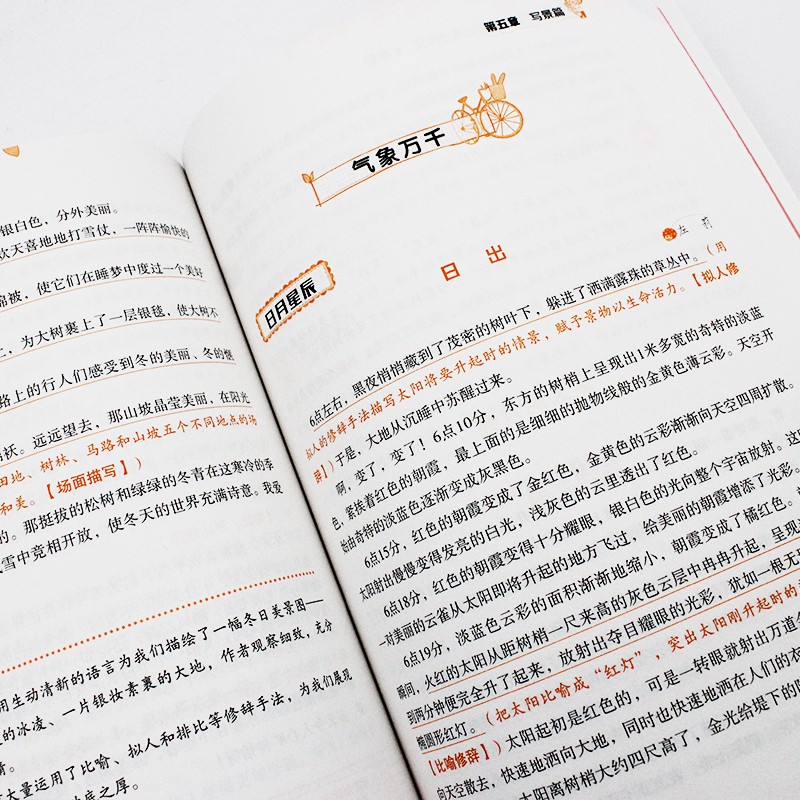 银白色，分外美丽。
欢天喜地地打雪仗，一阵阵愉快的
棉被，使它们在睡梦中度过一个美好
上，为大树裹上了一层银毯，使大树不
路上的行人们感受到冬的美丽、冬的惬
远远望去，那山坡晶莹美丽，在阳光
田地、树林、马路和山坡五个不同地点的场
和美。【场面描写】）
的。那挺拔的松树和绿绿的冬青在这寒冷的季
雪中竞相开放，使冬天的世界充满诗意。我爱
用生动清新的语言为我们描绘了一幅冬日美景图—
的冰凌、一片银妆素裹的大地，作者观察细致，充分
大量运用了比喻、拟人和排比等修辞手法，为我们展现
情。
底之厚。
第五章 写景篇
气象万千
日月星辰
日 出
左 莉
6点左右，黑夜悄悄藏到了茂密的树叶下，躲进了洒满露珠的草丛中。（用
拟人的修辞手法描写太阳将要升起时的情景，赋予景物以生命活力。【拟人修
辞】）于是，大地从沉睡中苏醒过来。
啊，变了，变了！6点10分，东方的树梢上呈现出1米多宽的奇特的淡蓝
色，紧挨着红色的朝霞，最上面的是细细的抛物线般的金黄色薄云彩。天空开
始由奇特的淡蓝色逐渐变成灰黑色。
6点15分，红色的朝霞变成了金红色，金黄色的云彩渐渐向天空四周扩散。
太阳射出慢慢变得发亮的白光，浅灰色的云里透出了红色。
6点18分，红色的朝霞变得十分耀眼，银白色的光向整个宇宙放射。这
一对美丽的云雀从太阳即将升起的地方飞过，给美丽的朝霞增添了光彩。
6点19分，淡蓝色云彩的面积渐渐地缩小，朝霞变成了橘红色。
瞬间，火红的太阳从距树梢一尺来高的灰色云层中冉冉升起，呈现
到两分钟便完全升了起来，放射出夺目耀眼的光彩，犹如一根无
椭圆形红灯。（把太阳比喻成“红灯”，突出太阳刚升起时的
【比喻修辞】）太阳起初是红色的，可是一转眼就射出万道
向天空散去，快速地洒向大地，同时也快速地洒在人们的衣
太阳离树梢大约四尺高了，金光给堤下的